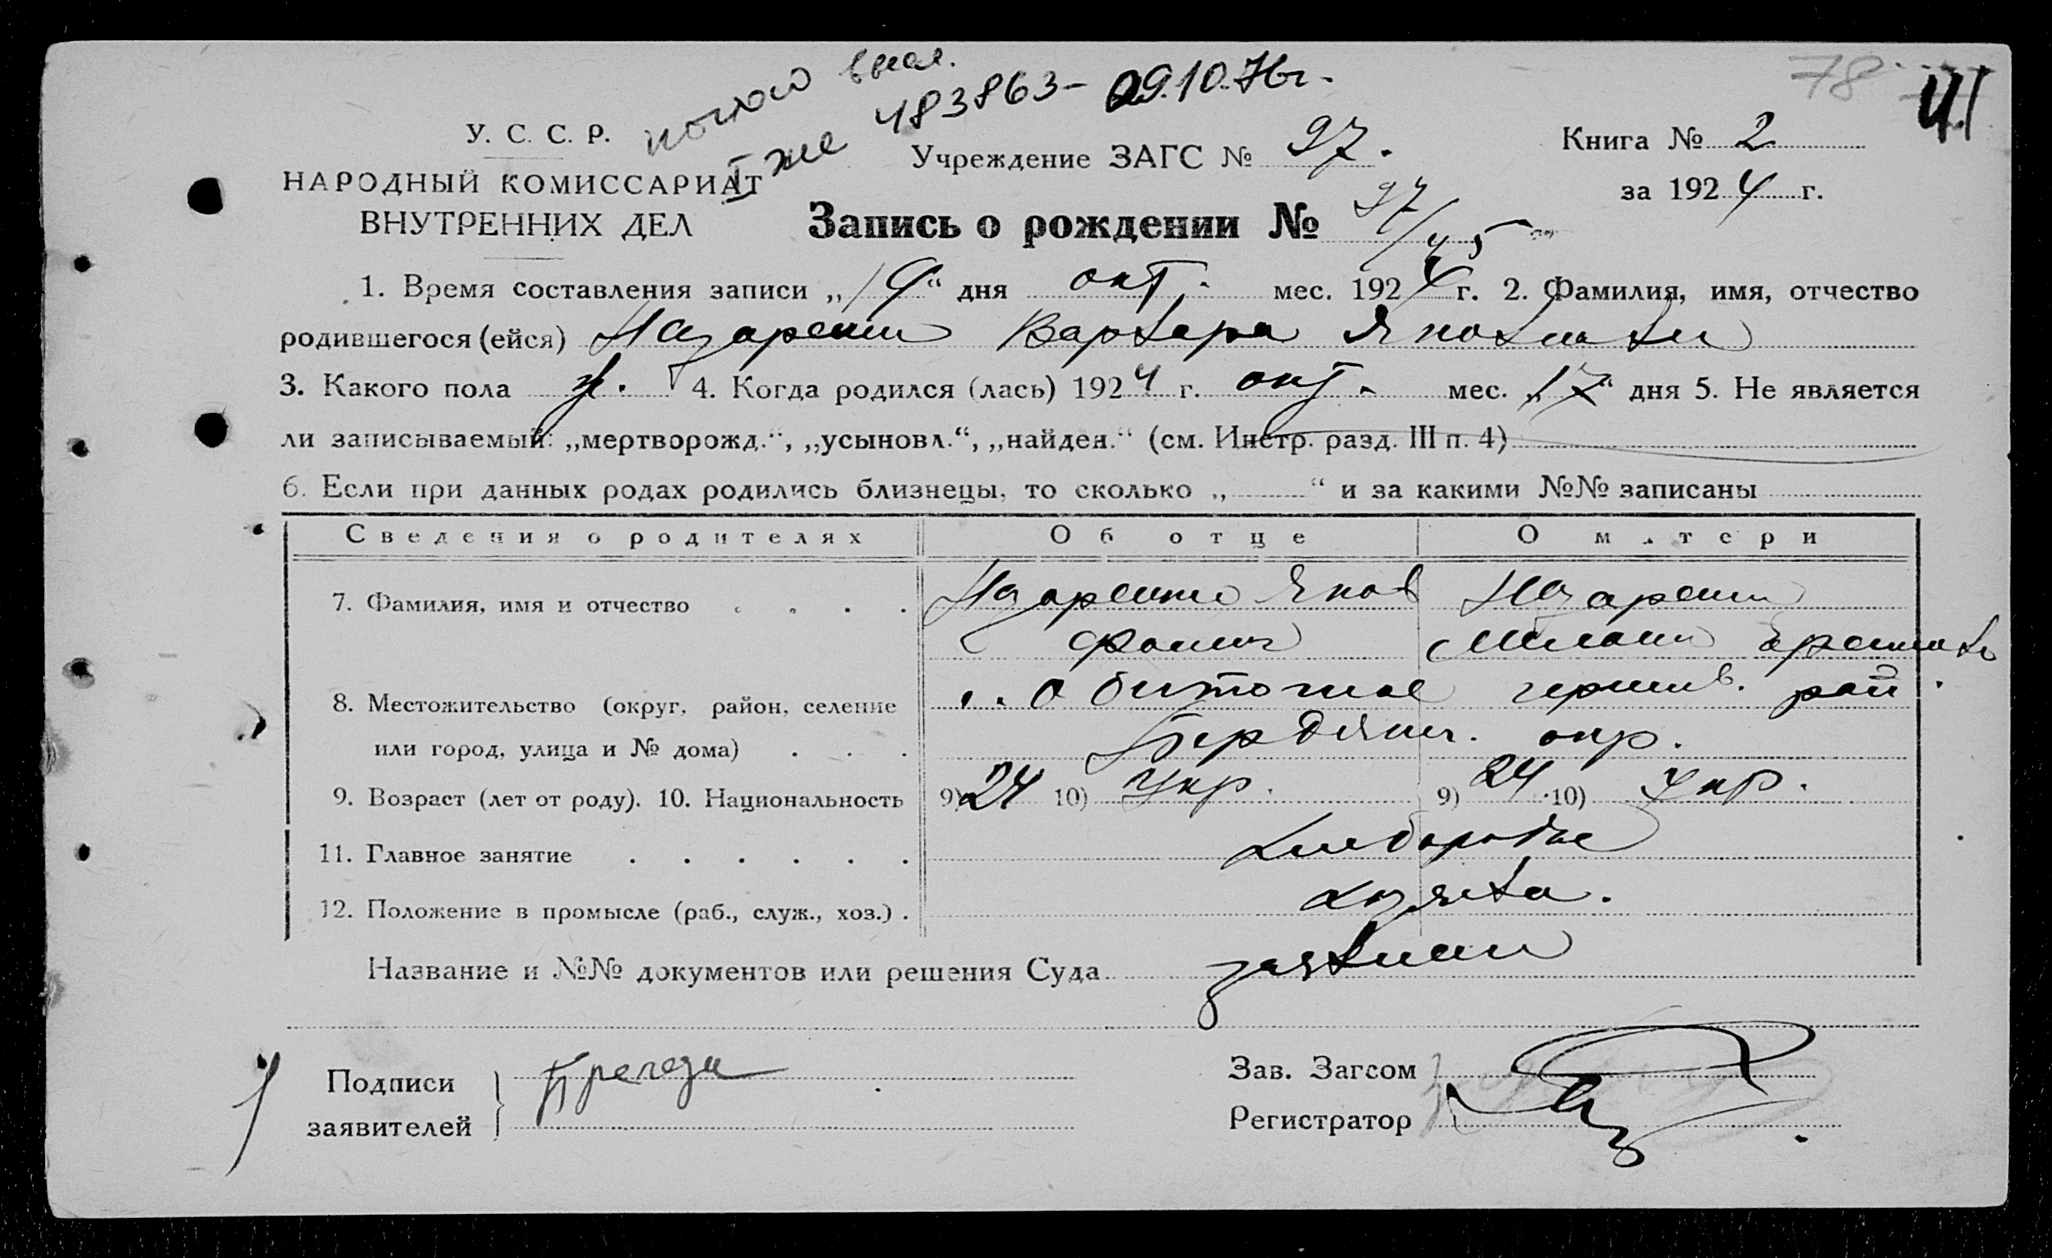 483863- 09.10.76г.
78
У. С. С. Р.
Учреждение ЗАГС № 97.
Книга № 2
НАРОДНЫЙ КОМИССАРИАТ
за 1924 г.
ВНУТРЕННИХ ДЕЛ
Запись о рождении № 97/45
1. Время составления записи „19“ дня окт. мес. 1924 г. 2. Фамилия, имя, отчество
родившегося (ейся) Назаренко Варвара Яковлевна
3. Какого пола ж. 4. Когда родился (лась) 1924 г. окт. мес. „17“ дня 5. Не является
ли записываемый: „мертворожд.“, „усыновл.“, „найден.“ (см. Инстр. разд. III п. 4)
6. Если при данных родах родились близнецы, то сколько „ “ и за какими №№ записаны
Сведения о родителях Об отце О матери
7. Фамилия, имя и отчество . . . . Назаренко Яков Назаренко
Фомич
8. Местожительство (округ, район, селение
с. Обиточное район.
или город, улица и № дома) . . . Бердянск. окр.
9. Возраст (лет от роду). 10. Национальность 9) 24 10) Укр. 9) 24 10) Укр.
11. Главное занятие . . . . . . Хлебороб
12. Положение в промысле (раб., служ., хоз.) . хозяева.
Название и №№ документов или решения Суда
Подписи
заявителей
Зав. Загсом
Регистратор